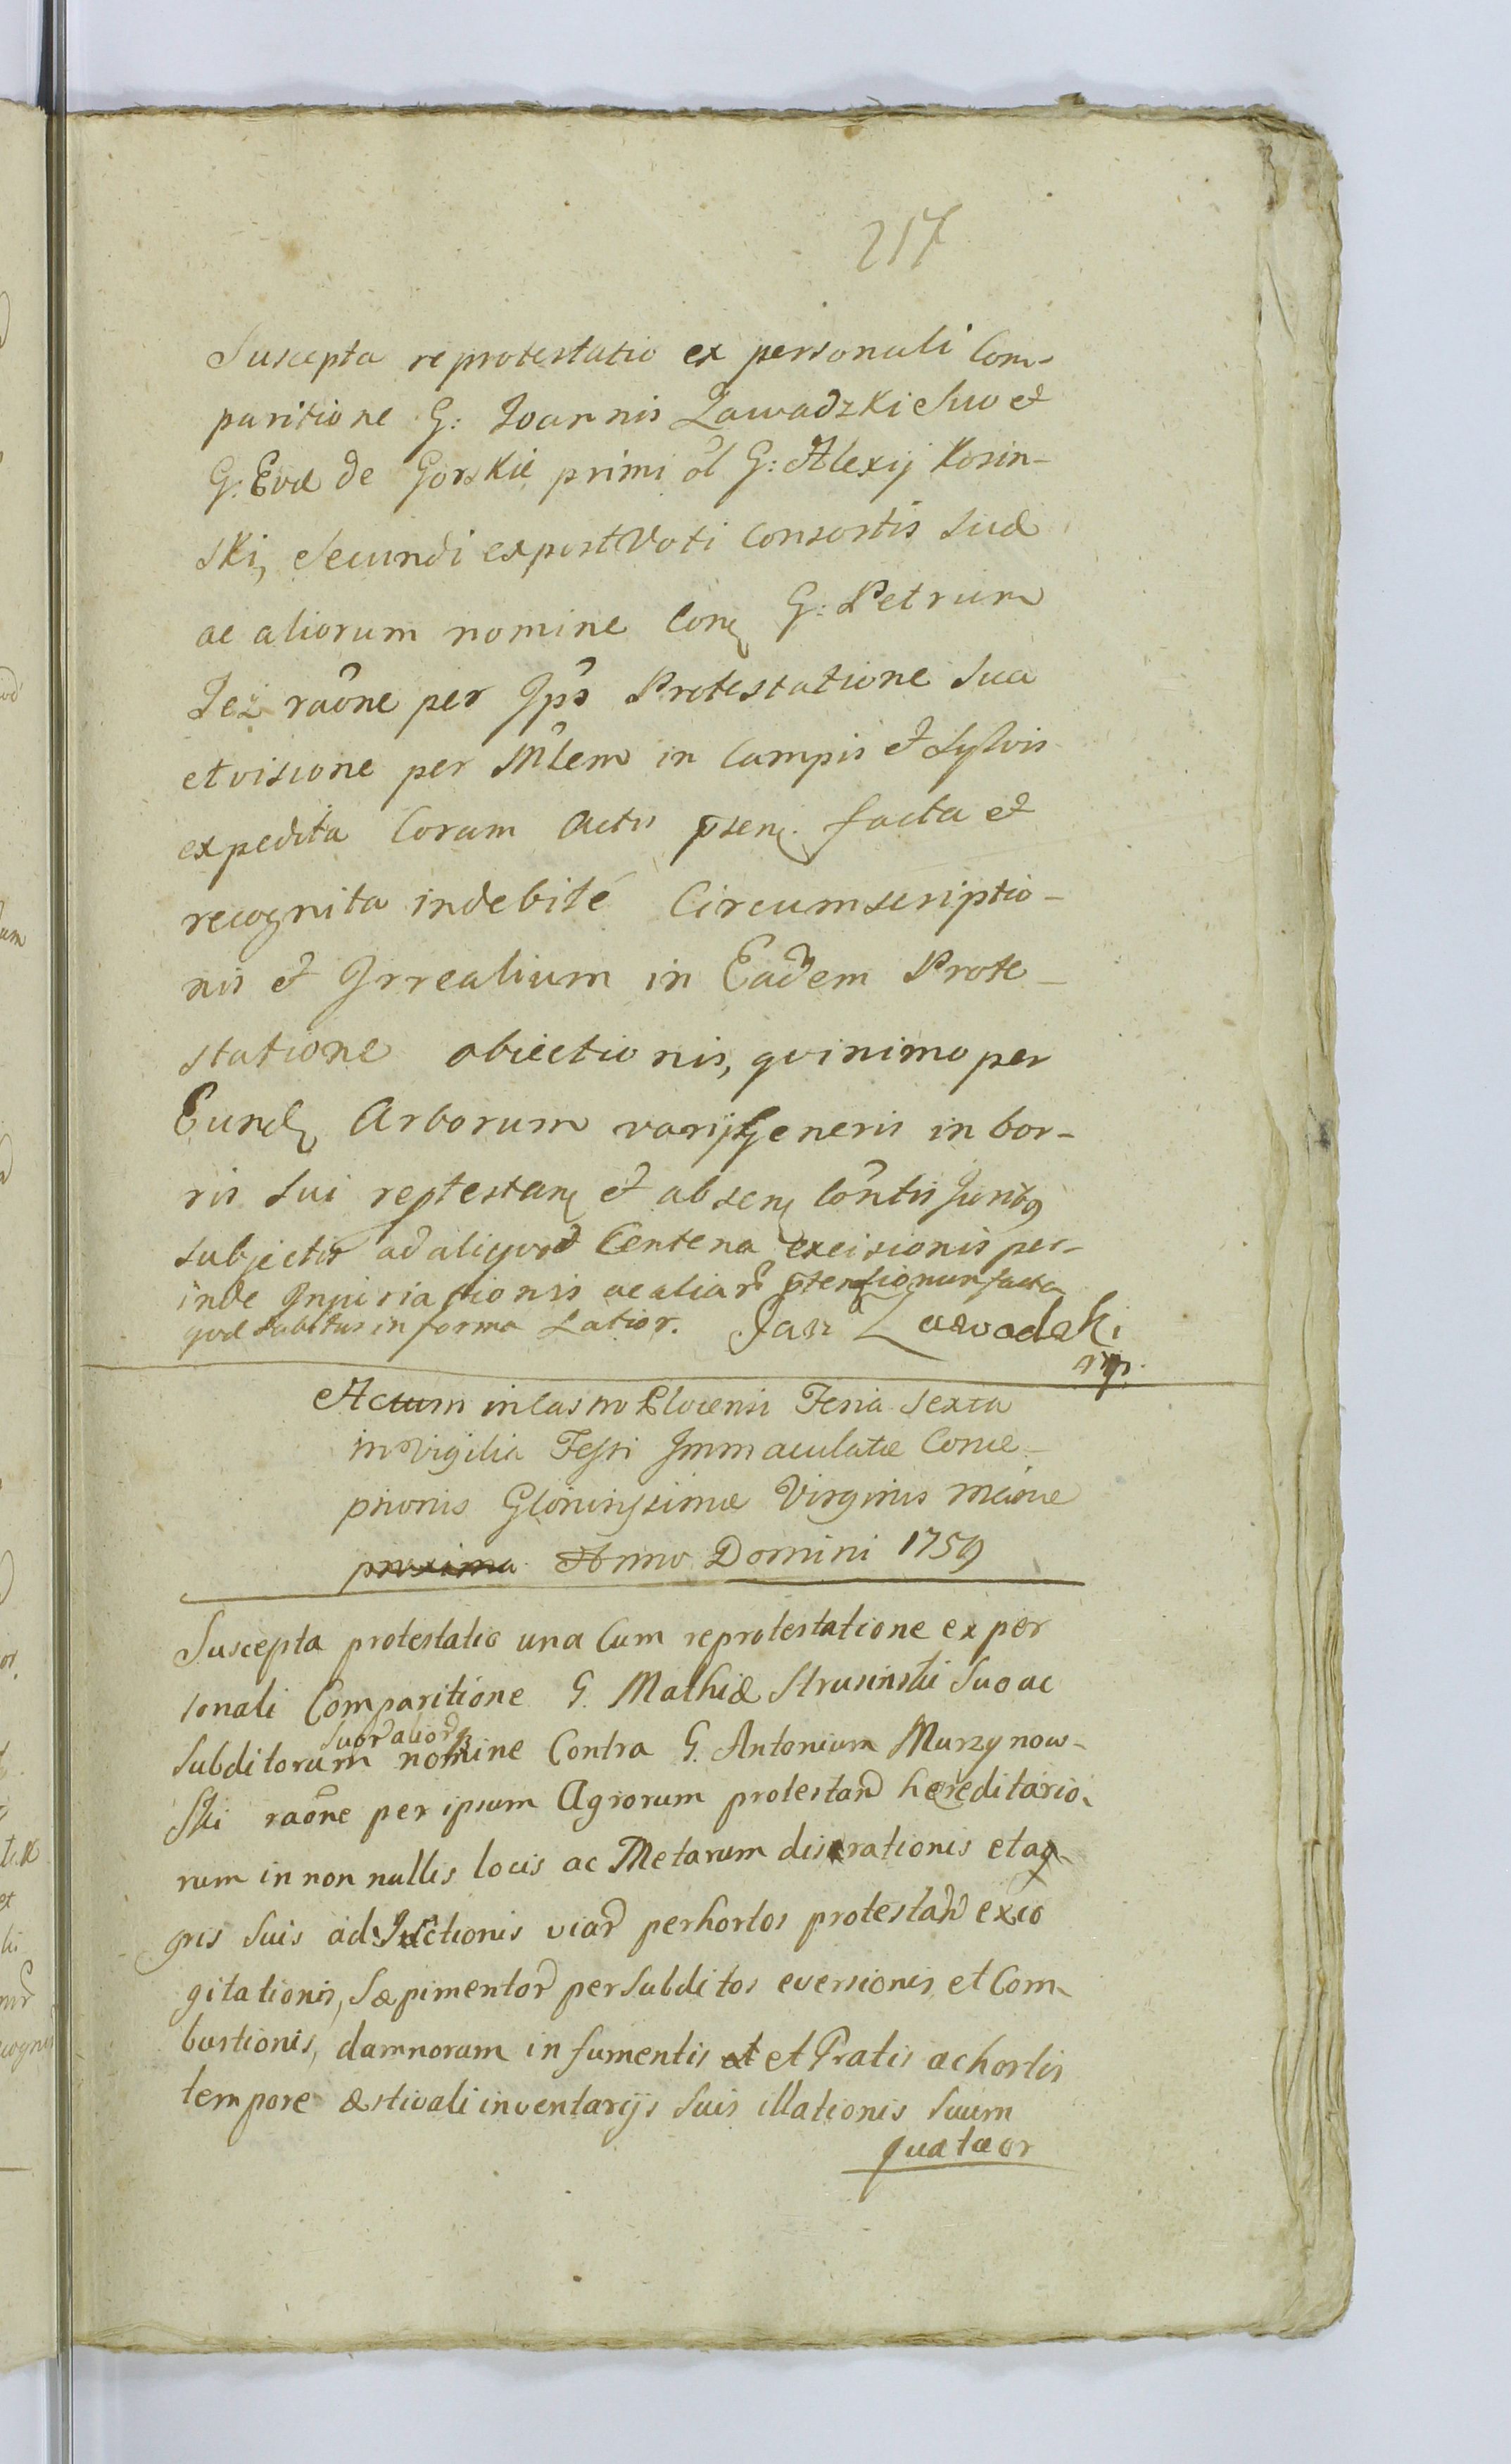 217
Suscepta reprotestatio ex personali Com-
paritione G: Joannis Zawadzki Suo et
G: Evæ de Gorskie primi ol G: Alexij Kosin-
ski, Secundi expost Voti Consortis Suæ
ac aliorum nomine Con G: Petrum
Jeż raone per Ips Protestatione Sua
et visione per Mlem in Campis et Sylvis
expedita Coram Actis psen. facta et
recognita indebité Circumscriptio-
nis et Irrealium in Eadem Prote-
statione obiectionis, qvinimo per
Eund Arborum varij Generis in bor-
ris Sui reptestan et absen Contis Juribg
Subjectis ad aliqvod Centena excisionis per-
inde Injuriationis ac aliar ptensionum facta
qvæ dabitur in forma Latior. Jan Zawadzki
mp.
Actum in Castro Plocensi Feria Sexta
in Vigilia Festi Immaculatæ Conce-
ptionis Gloriosissimæ Virginis Mariæ
proxima Anno Domini 1759
Suscepta protestatio una Cum reprotestatione ex per
sonali Comparitione G. Mathiæ Strusinski Suo ac
suor alior
Subditorum nomine Contra G. Antonium Murzynow-
ski raone per ipsum Agrorum protestan hereditario-
rum in non nullis locis ac Metarum disrationis et ag-
gris Suis ad Junctionis viar per hortos protestan exco
gitationis, Sæpimentor per Subditos eversionis et Com-
bustionis, damnorum in frumentis et et Pratis ac hortis
tempore æstivali inventarijs Suis illationis Suum
quatuor